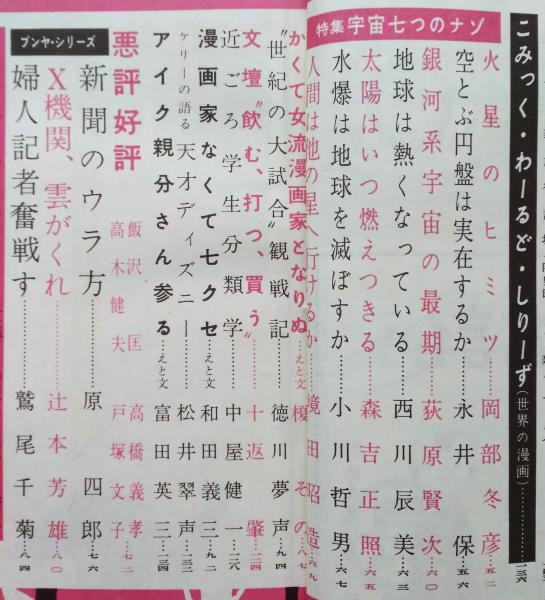 こみっく・わーるど・しりーず(世界の漫画)…………二三六
特集 宇宙七つのナゾ
火星のヒミツ……岡部冬彦…五二
空とぶ円盤は実在するか……永井保…五六
銀河系宇宙の最期……荻原賢次…六〇
地球は熱くなっている……西川辰美…六三
太陽はいつ燃えつきる……森吉正照…六五
水爆は地球を滅ぼすか……小川哲男…六七
人間は他の星へ行けるか…境田昭造…六九
かくて女流漫画家となりぬ…えと文 榎その…八七
〝世紀の大試合〟観戦記……徳川夢声…九四
文壇〝飲む、打つ、買う〟……十返肇…一二四
近ごろ学生分類学……中屋健一…一二八
漫画家なくて七クセ…えと文 和田義三…九二
ケリーの語る 天才ディズニー……松井翠声…一三二
アイク親分さん参る…えと文 富田英三…一三四
悪評好評 飯沢匡 高木健夫 高橋義孝 戸塚文子…七二
ブンヤ・シリーズ
新聞のウラ方……原四郎…七六
X機関、雲がくれ……辻本芳雄…八〇
婦人記者奮戦す……鷲尾千菊…八四